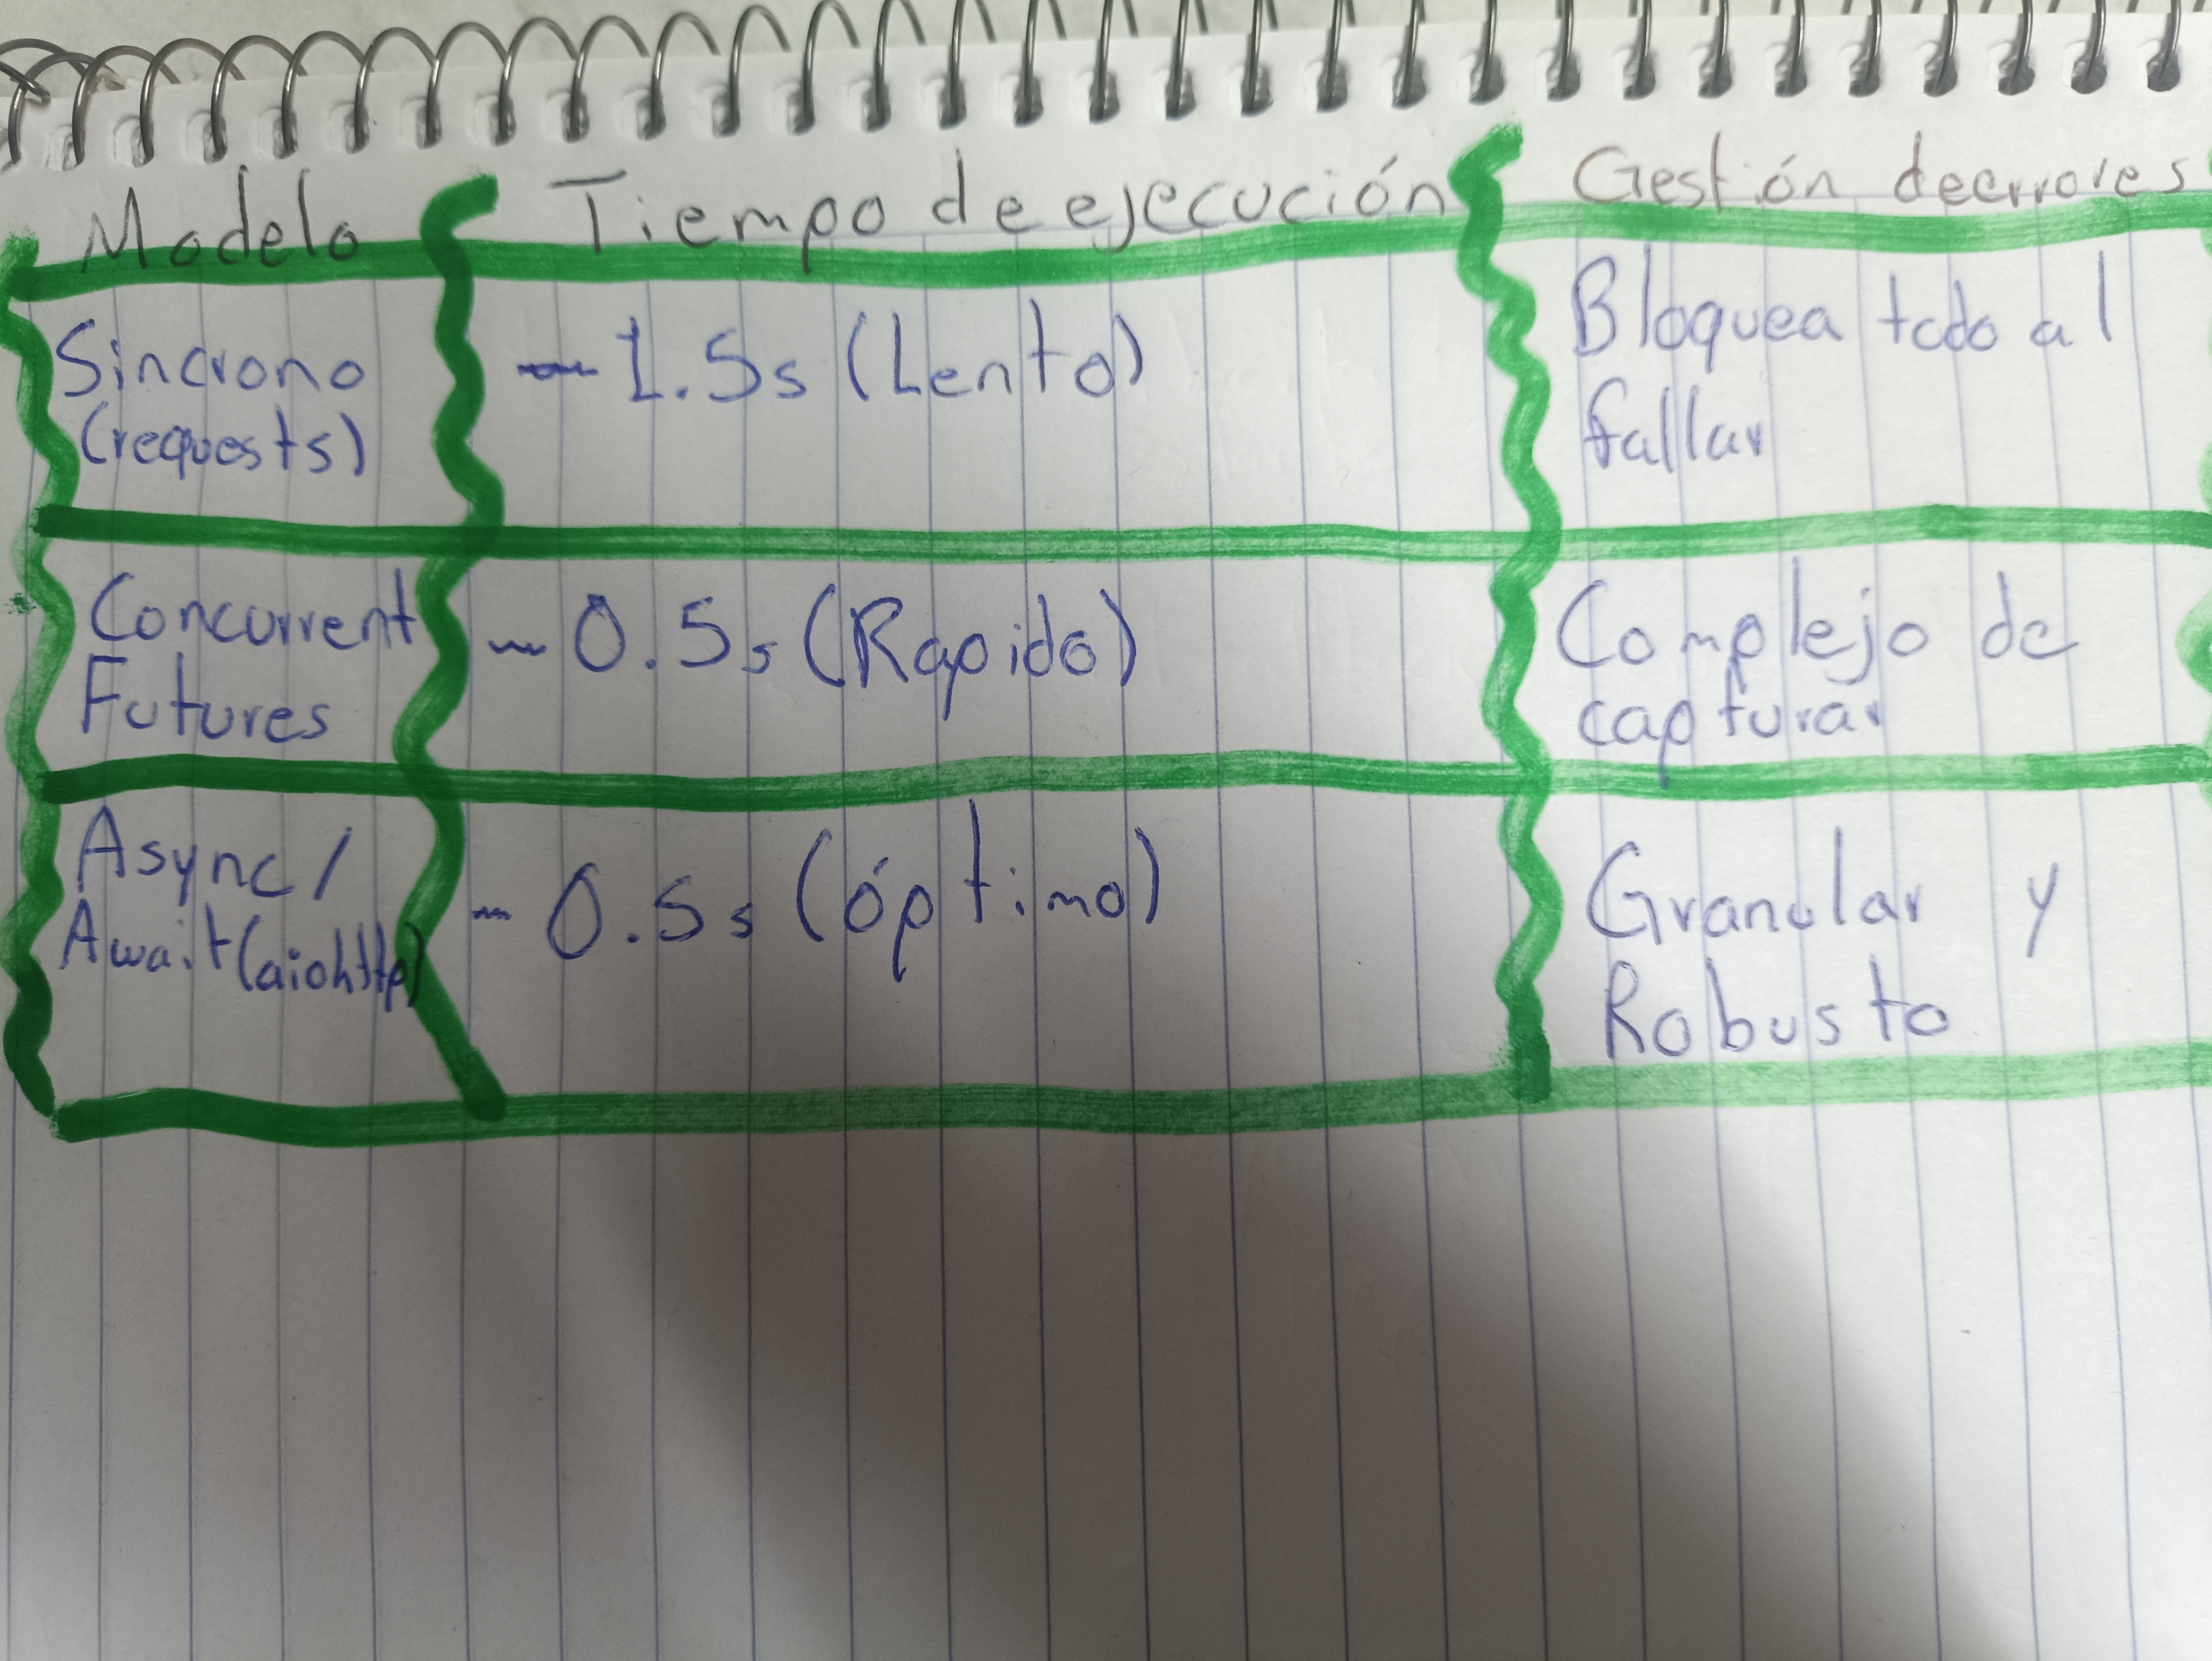 Modelo
Tiempo de ejecución
Gestión de errores
Sincrono
(requests)
~ 1.5s (Lento)
Bloquea todo al
fallar
Concurrent
Futures
~ 0.5s (Rapido)
Complejo de
capturar
Async/
Await(aiohttp)
~ 0.5s (óptimo)
Granular y
Robusto